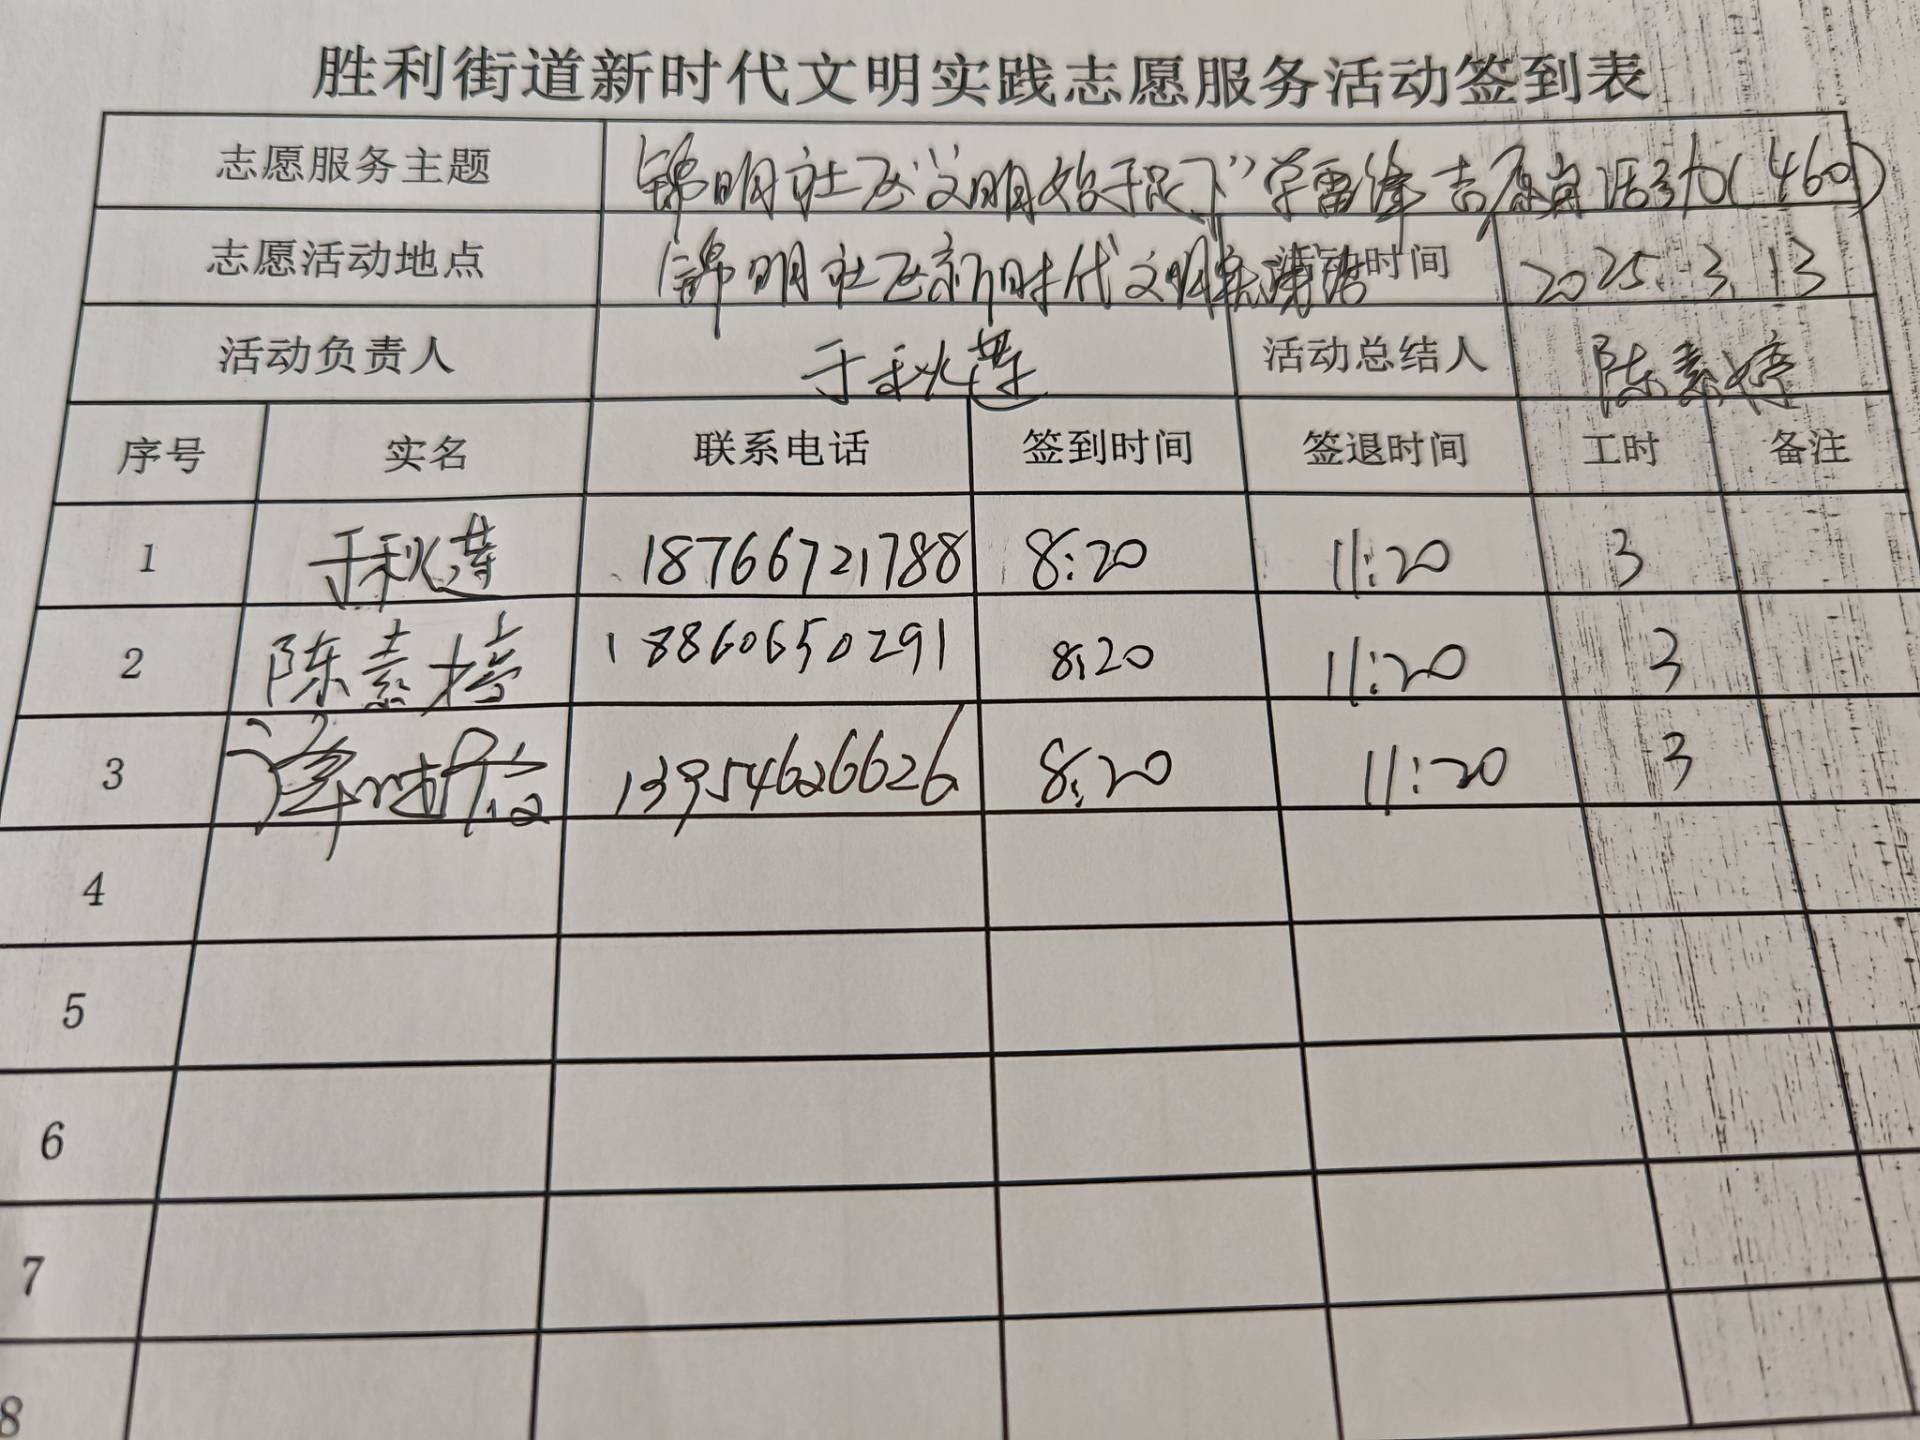 胜利街道新时代文明实践志愿服务活动签到表
志愿服务主题 锦明社区"文明始于足下"学雷锋志愿岗活动(460)
志愿活动地点 锦明社区新时代文明实践站 活动时间 2025.3.13
活动负责人 于秋莲 活动总结人 陈素婷
序号 实名 联系电话 签到时间 签退时间 工时 备注
1 于秋莲 18766721788 8:20 11:20 3
2 陈素婷 18860650291 8:20 11:20 3
3 13954626626 8:20 11:20 3
4
5
6
7
8